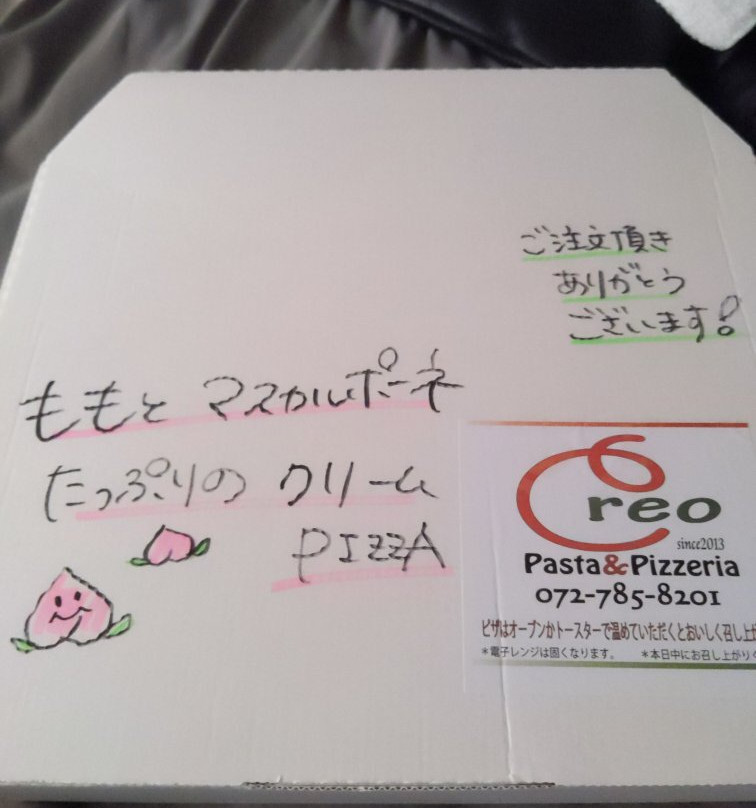 ご注文頂き
ありがとう
ございます!
ももと マスカルポーネ
たっぷりの クリーム
PIZZA
Creo
since2013
Pasta&Pizzeria
072-785-8201
ピザはオーブンかトースターで温めていただくとおいしく召し上が
*電子レンジは固くなります。 *本日中にお召し上がりく